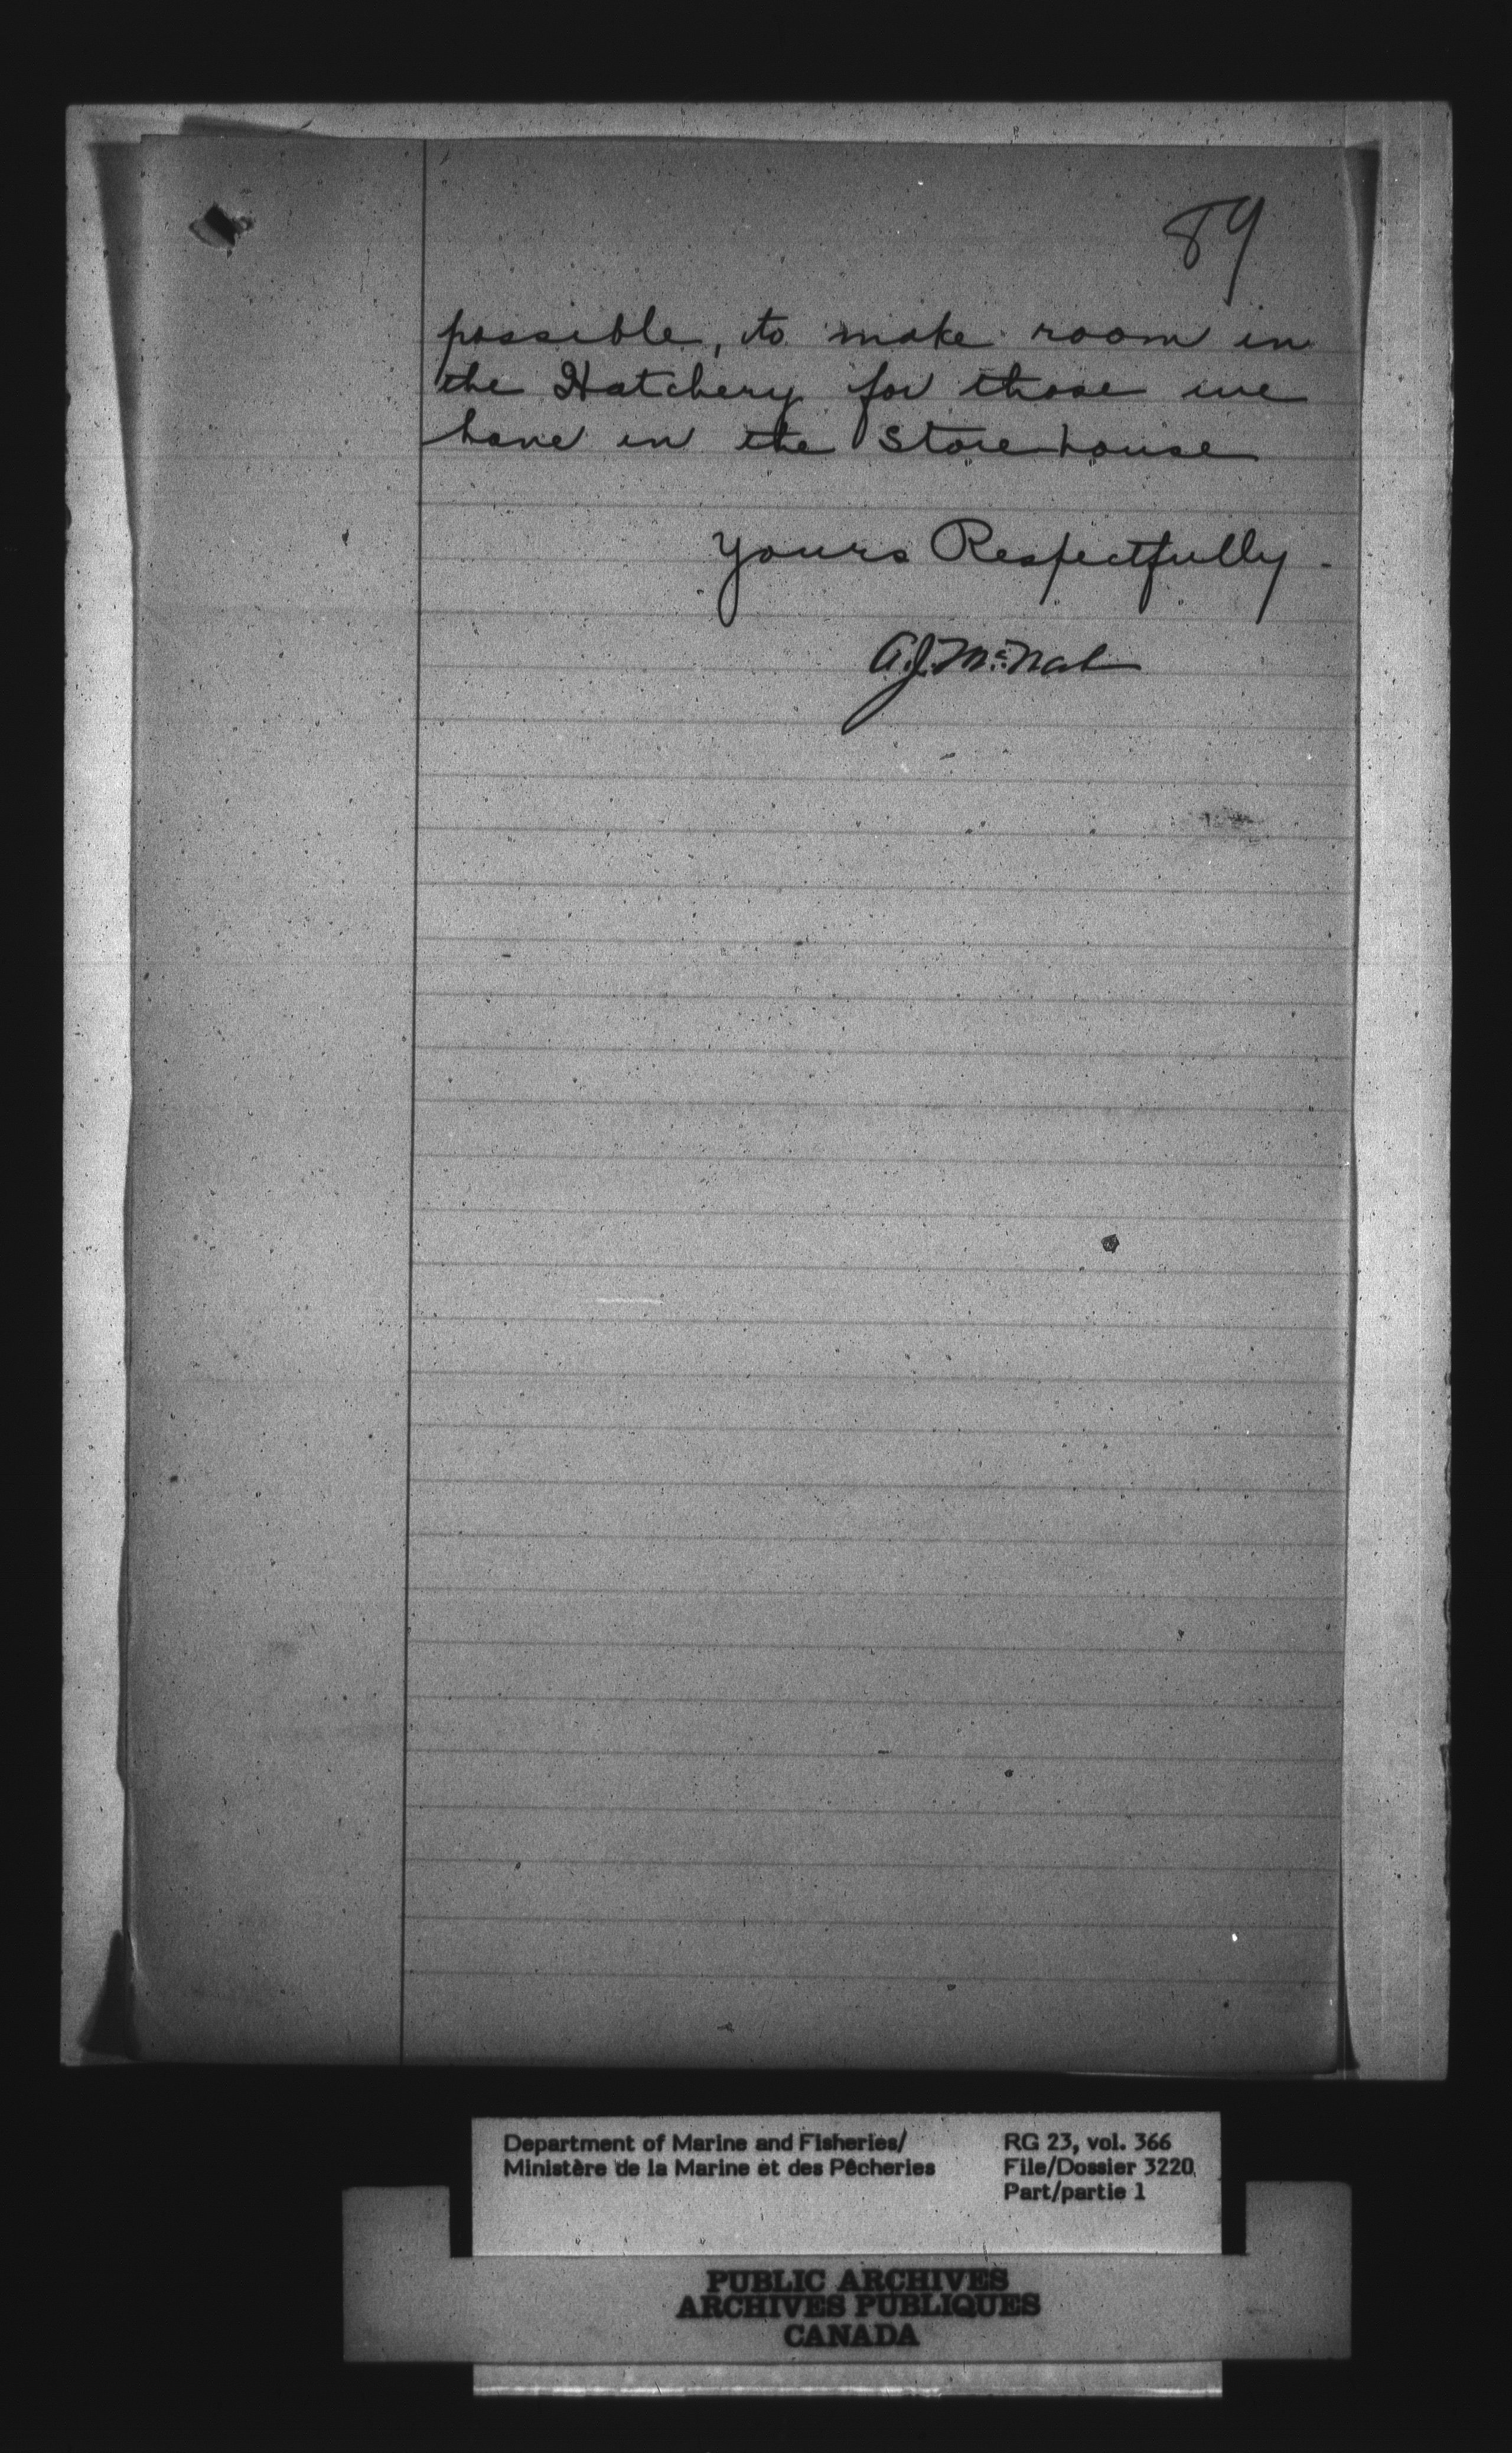 89
possible, to make room in
the Hatchery for those we
have in the Storehouse
Yours Respectfully.
A.J. McNab
Department of Marine and Fisheries/
Ministère de la Marine et des Pêcheries
RG 23, vol. 366
File/Dossier 3220
Part/partie 1
PUBLIC ARCHIVES
ARCHIVES PUBLIQUES
CANADA